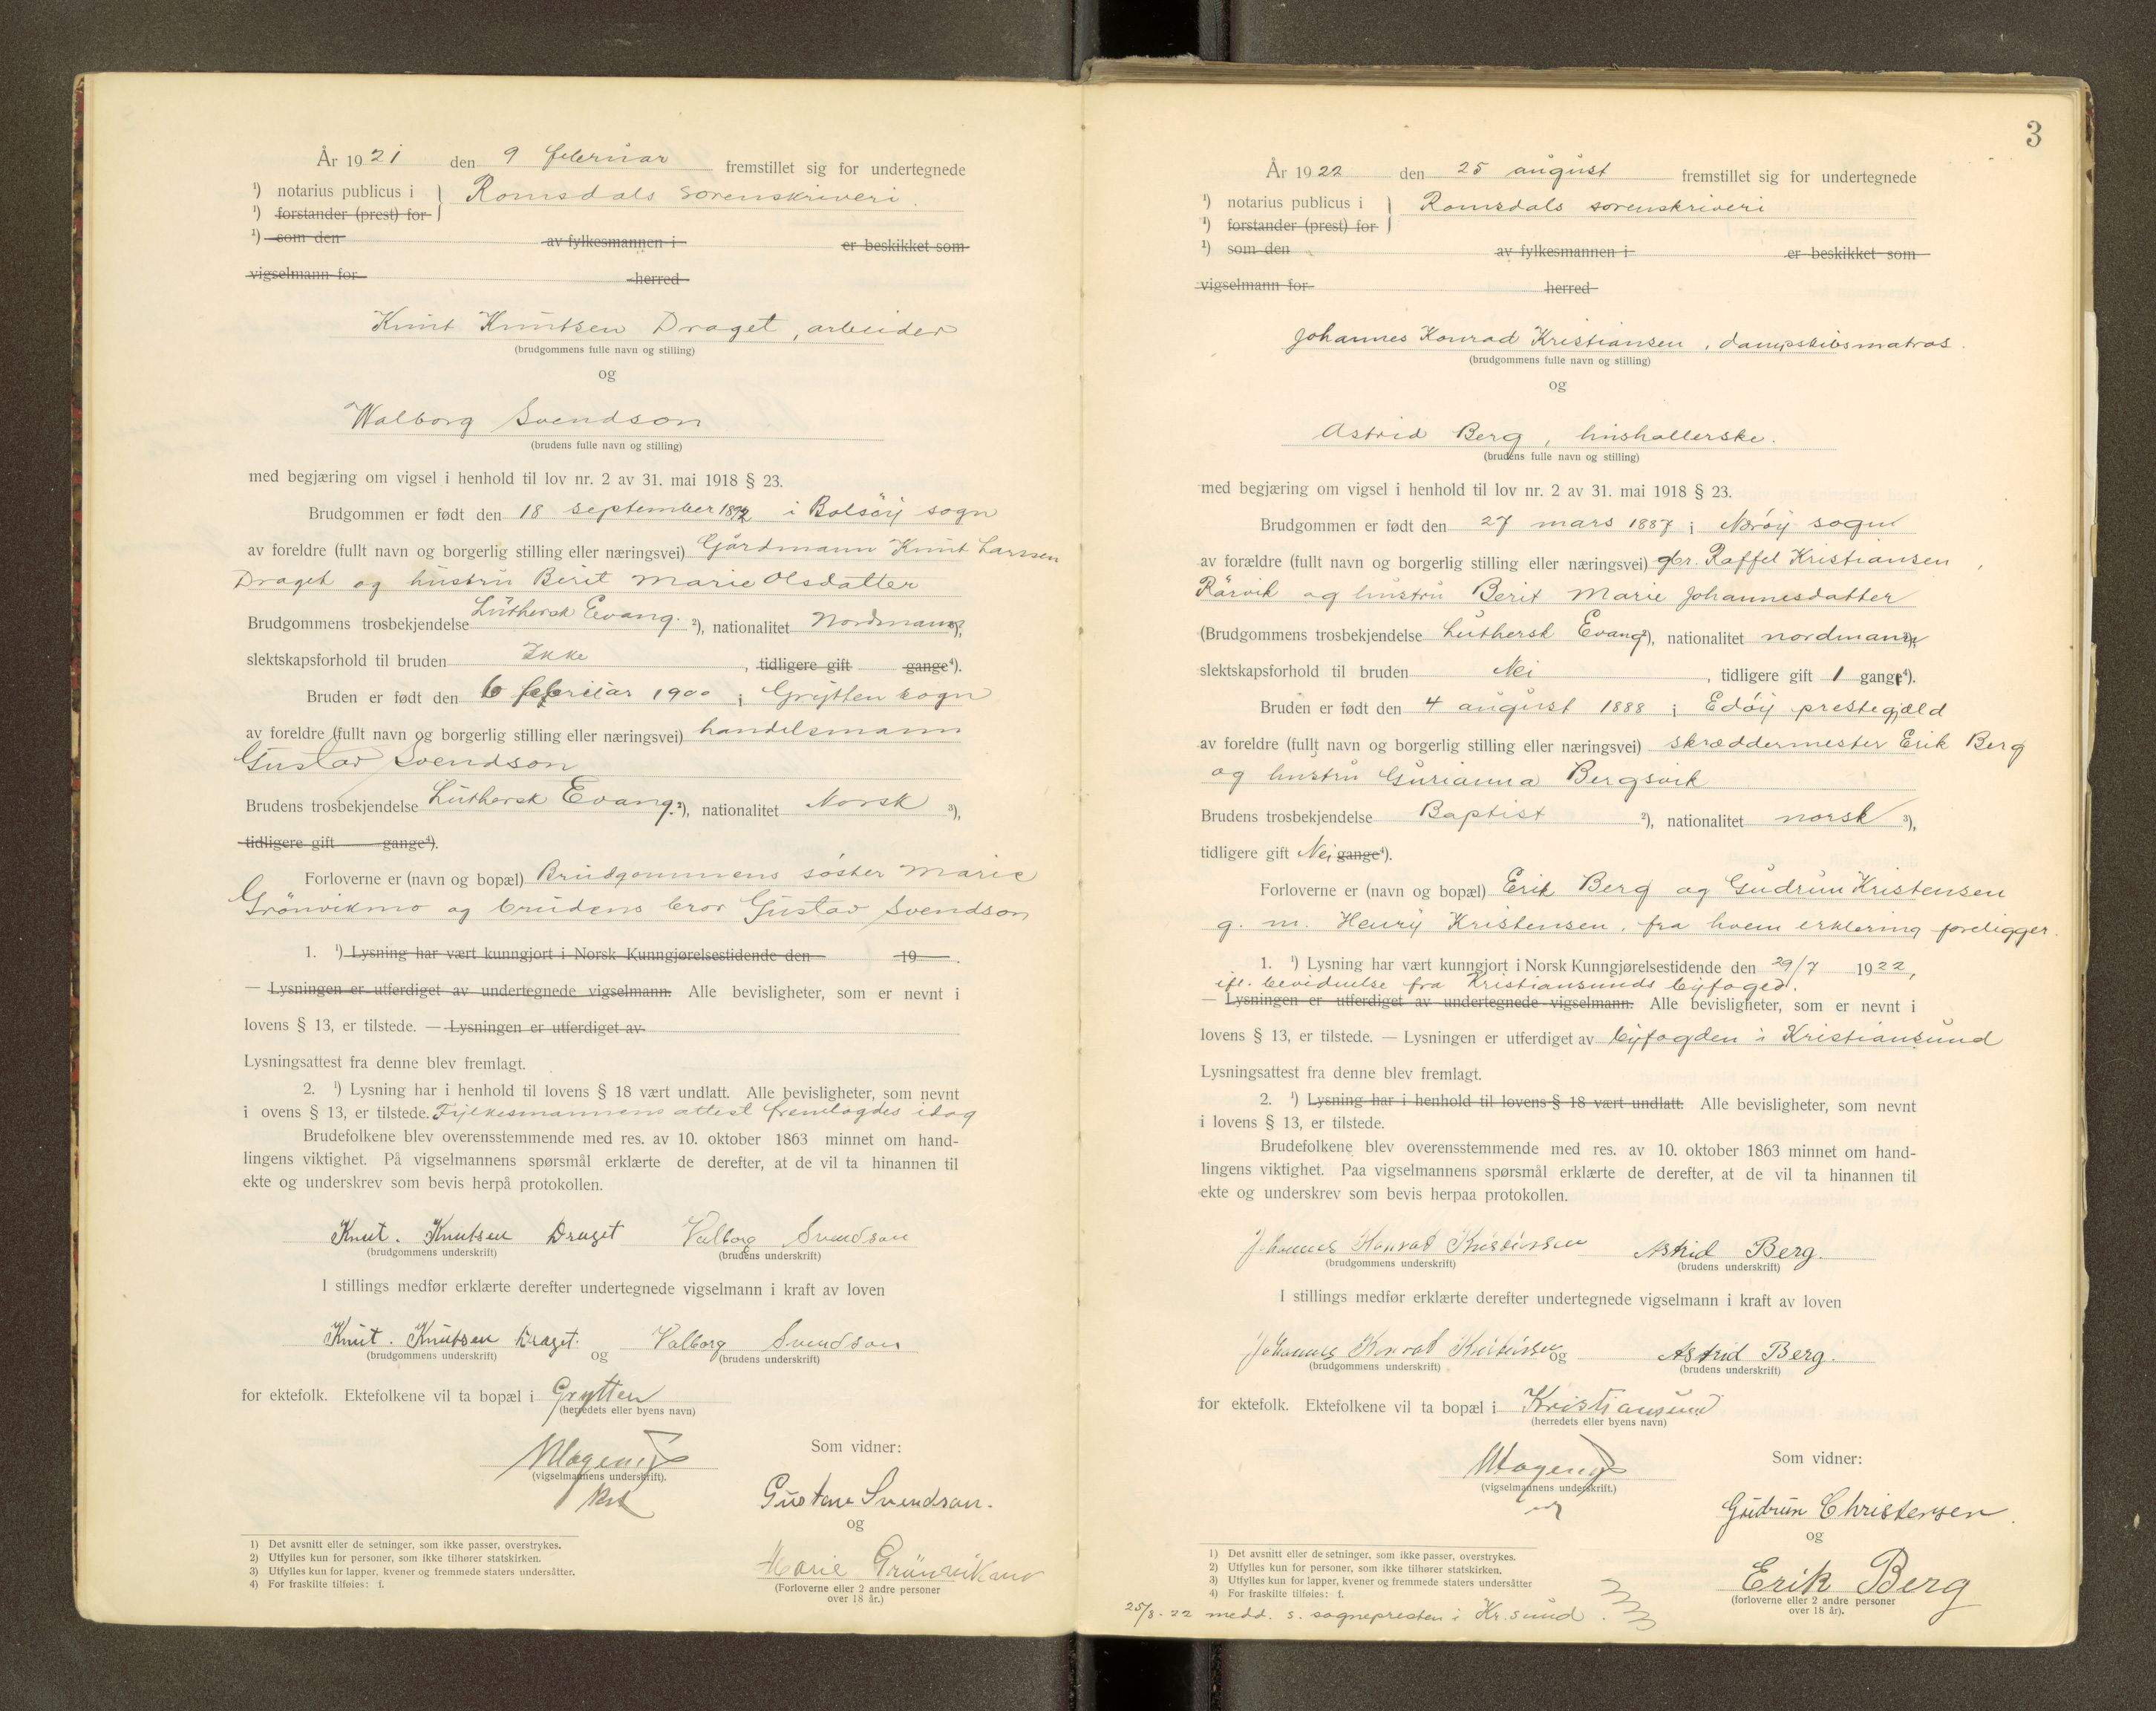 År 1921 den 9 februar fremstillet sig for undertegnede
¹) notarius publicus i } Romsdals sorenskriveri.
¹) forstander (prest) for
¹) som den av fylkesmannen i er beskikket som
vigselmann for herred
Knut Knutsen Draget, arbeider
(brudgommens fulle navn og stilling)
og
Walborg Svendson
(brudens fulle navn og stilling)
med begjæring om vigsel i henhold til lov nr. 2 av 31. mai 1918 § 23.
Brudgommen er født den 18 september 1892 i Bolsöy sogn
av foreldre (fullt navn og borgerlig stilling eller næringsvei) Gårdmann Knut Larssen
Draget og hustru Berit Marie Olsdatter
Brudgommens trosbekjendelse Luthersk Evang. ²), nationalitet Nordmann ³),
slektskapsforhold til bruden Ikke, tidligere gift gange⁴).
Bruden er født den 6 februar 1900 i Grytten sogn
av foreldre (fullt navn og borgerlig stilling eller næringsvei) handelsmann
Gustav Svendson
Brudens trosbekjendelse Luthersk Evang. ²), nationalitet Norsk ³),
tidligere gift gange⁴).
Forloverne er (navn og bopæl) Brudgommens söster Marie
Grönvikmo og brudens bror Gustav Svendson
1. ¹) Lysning har vært kunngjort i Norsk Kunngjørelsestidende den 19 .
— Lysningen er utferdiget av undertegnede vigselmann. Alle bevisligheter, som er nevnt i
lovens § 13, er tilstede. — Lysningen er utferdiget av
Lysningsattest fra denne blev fremlagt.
2. ¹) Lysning har i henhold til lovens § 18 vært undlatt. Alle bevisligheter, som nevnt
i ovens § 13, er tilstede. Fylkesmannens attest fremlagdes idag
Brudefolkene blev overensstemmende med res. av 10. oktober 1863 minnet om hand-
lingens viktighet. På vigselmannens spørsmål erklærte de derefter, at de vil ta hinannen til
ekte og underskrev som bevis herpå protokollen.
Knut. Knutsen Draget Valborg Svendson
(brudgommens underskrift) (brudens underskrift)
I stillings medfør erklærte derefter undertegnede vigselmann i kraft av loven
Knut. Knutsen Draget. og Valborg Svendson
(brudgommens underskrift) (brudens underskrift)
for ektefolk. Ektefolkene vil ta bopæl i Grytten
(herredets eller byens navn)
Som vidner:
(vigselmannens underskrift).
Gustav Svendson.
og
Marie Grönvikmo
(Forloverne eller 2 andre personer
over 18 år.)
1) Det avsnitt eller de setninger, som ikke passer, overstrykes.
2) Utfylles kun for personer, som ikke tilhører statskirken.
3) Utfylles kun for lapper, kvener og fremmede staters undersåtter.
4) For fraskilte tilføies: f.
3
År 1922 den 25 august fremstillet sig for undertegnede
¹) notarius publicus i } Romsdals sorenskriveri
¹) forstander (prest) for
¹) som den av fylkesmannen i er beskikket som
vigselmann for herred
Johannes Konrad Kristiansen, dampskibsmatros.
(brudgommens fulle navn og stilling)
og
Astrid Berg, hushollerske.
(brudens fulle navn og stilling)
med begjæring om vigsel i henhold til lov nr. 2 av 31. mai 1918 § 23.
Brudgommen er født den 27 mars 1887 i Nærøy sogn
av forældre (fullt navn og borgerlig stilling eller næringsvei) gbr. Raffel Kristiansen
Rörvik og hustru Berit Marie Johannesdatter
(Brudgommens trosbekjendelse Luthersk Evang ²), nationalitet nordmann ³),
slektskapsforhold til bruden Nei, tidligere gift 1 gang⁴).
Bruden er født den 4 august 1888 i Edöy prestegjæld
av foreldre (fullt navn og borgerlig stilling eller næringsvei) skræddermester Erik Berg
og hustru Gurianna Bergsvik
Brudens trosbekjendelse Baptist ²), nationalitet norsk ³),
tidligere gift Nei gange⁴).
Forloverne er (navn og bopæl) Erik Berg og Gudrun Kristensen
g. m. Henry Kristensen, fra hvem erklæring foreligger.
1. ¹) Lysning har vært kunngjort i Norsk Kunngjørelsestidende den 29/7 1922,
ifl. bevidnelse fra Kristiansunds byfoged.
— Lysningen er utferdiget av undertegnede vigselmann. Alle bevisligheter, som er nevnt i
lovens § 13, er tilstede. — Lysningen er utferdiget av byfogden i Kristiansund
Lysningsattest fra denne blev fremlagt.
2. ¹) Lysning har i henhold til lovens § 18 vært undlatt. Alle bevisligheter, som nevnt
i lovens § 13, er tilstede.
Brudefolkene blev overensstemmende med res. av 10. oktober 1863 minnet om hand-
lingens viktighet. Paa vigselmannens spørsmål erklærte de derefter, at de vil ta hinannen til
ekte og underskrev som bevis herpaa protokollen.
Johannes Konrad Kristiansen Astrid Berg.
(brudgommens underskrift) (brudens underskrift)
I stillings medfør erklærte derefter undertegnede vigselmann i kraft av loven
Johannes Konrad Kristiansen og Astrid Berg.
(brudgommens underskrift) (brudens underskrift)
for ektefolk. Ektefolkene vil ta bopæl i Kristiansund
(herredets eller byens navn)
Som vidner:
(vigselmannens underskrift.)
Gudrun Christensen.
og
Erik Berg
(forloverne eller 2 andre personer
over 18 år).
1) Det avsnitt eller de setninger, som ikke passer, overstrykes.
2) Utfylles kun for personer, som ikke tilhører statskirken.
3) Utfylles kun for lapper, kvener og fremmede staters undersåtter
4) For fraskilte tilføies: f.
25/8-22 medd. s. sognepresten i Kr.sund.